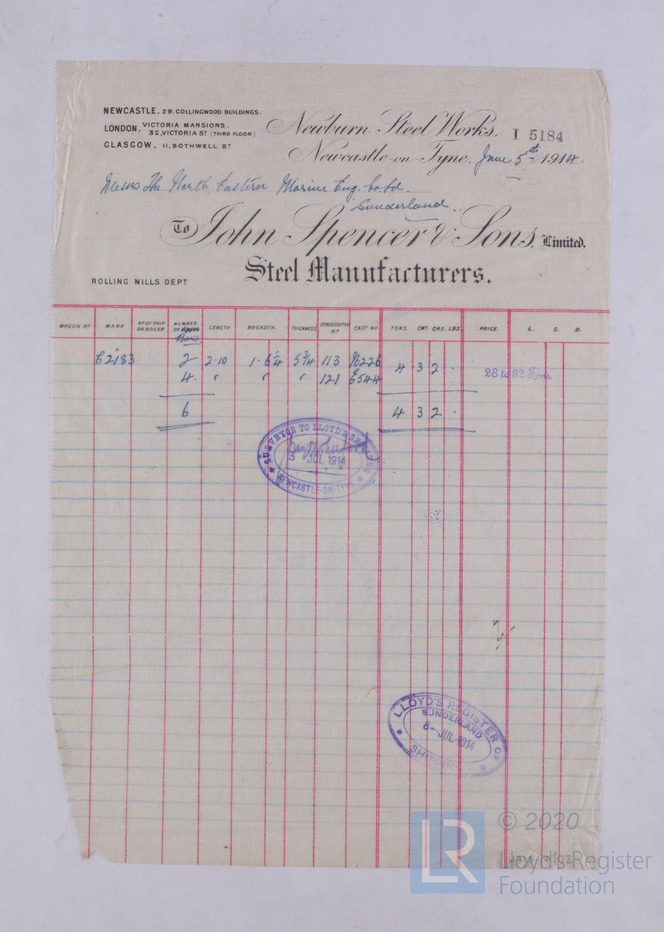 NEWCASTLE. 29. COLLINGWOOD BUILDINGS.
LONDON. VICTORIA MANSIONS. 32, VICTORIA ST (THIRD FLOOR)
GLASGOW, 11, BOTHWELL ST
Newburn Steel Works.
I 5184
Newcastle-on-Tyne, June 5th 1914.
Messrs The North Eastern Marine Eng. Co. Ld.
Sunderland.
To John Spencer & Sons, Limited.
Steel Manufacturers.
ROLLING MILLS DEPT
WAGON No MARK No OF SHIP OR BOILER NUMBER OF Bars LENGTH BREADTH. THICKNESS CONSECUTIVE No CAST No TONS. CWT. QRS. LBS. PRICE. L. S. D.
E2183 2 2-10 1-6 1/4 5 3/4 113 4 3 2 .
4 " " " 121 6544 28 to
6 4 3 2 .
SURVEYOR TO LLOYD'S
3 JUL 1914
NEWCASTLE-ON-TYNE
LLOYD'S REGISTER OF
SUNDERLAND
8-JUL-1914
LR
© 2020
Lloyd's Register
Foundation